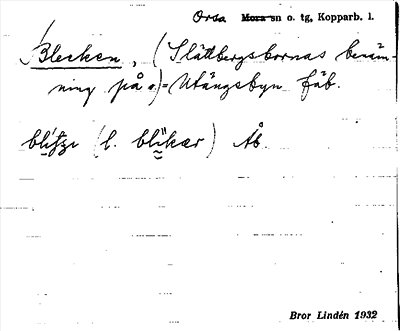 Orsa Mora sn o. tg, Kopparb. l.
Blecken, (Slättbergsbornas benäm-
ning på s.) = Utängsbyn fäb.
(l. blikar) Åb
Bror Lindén 1932